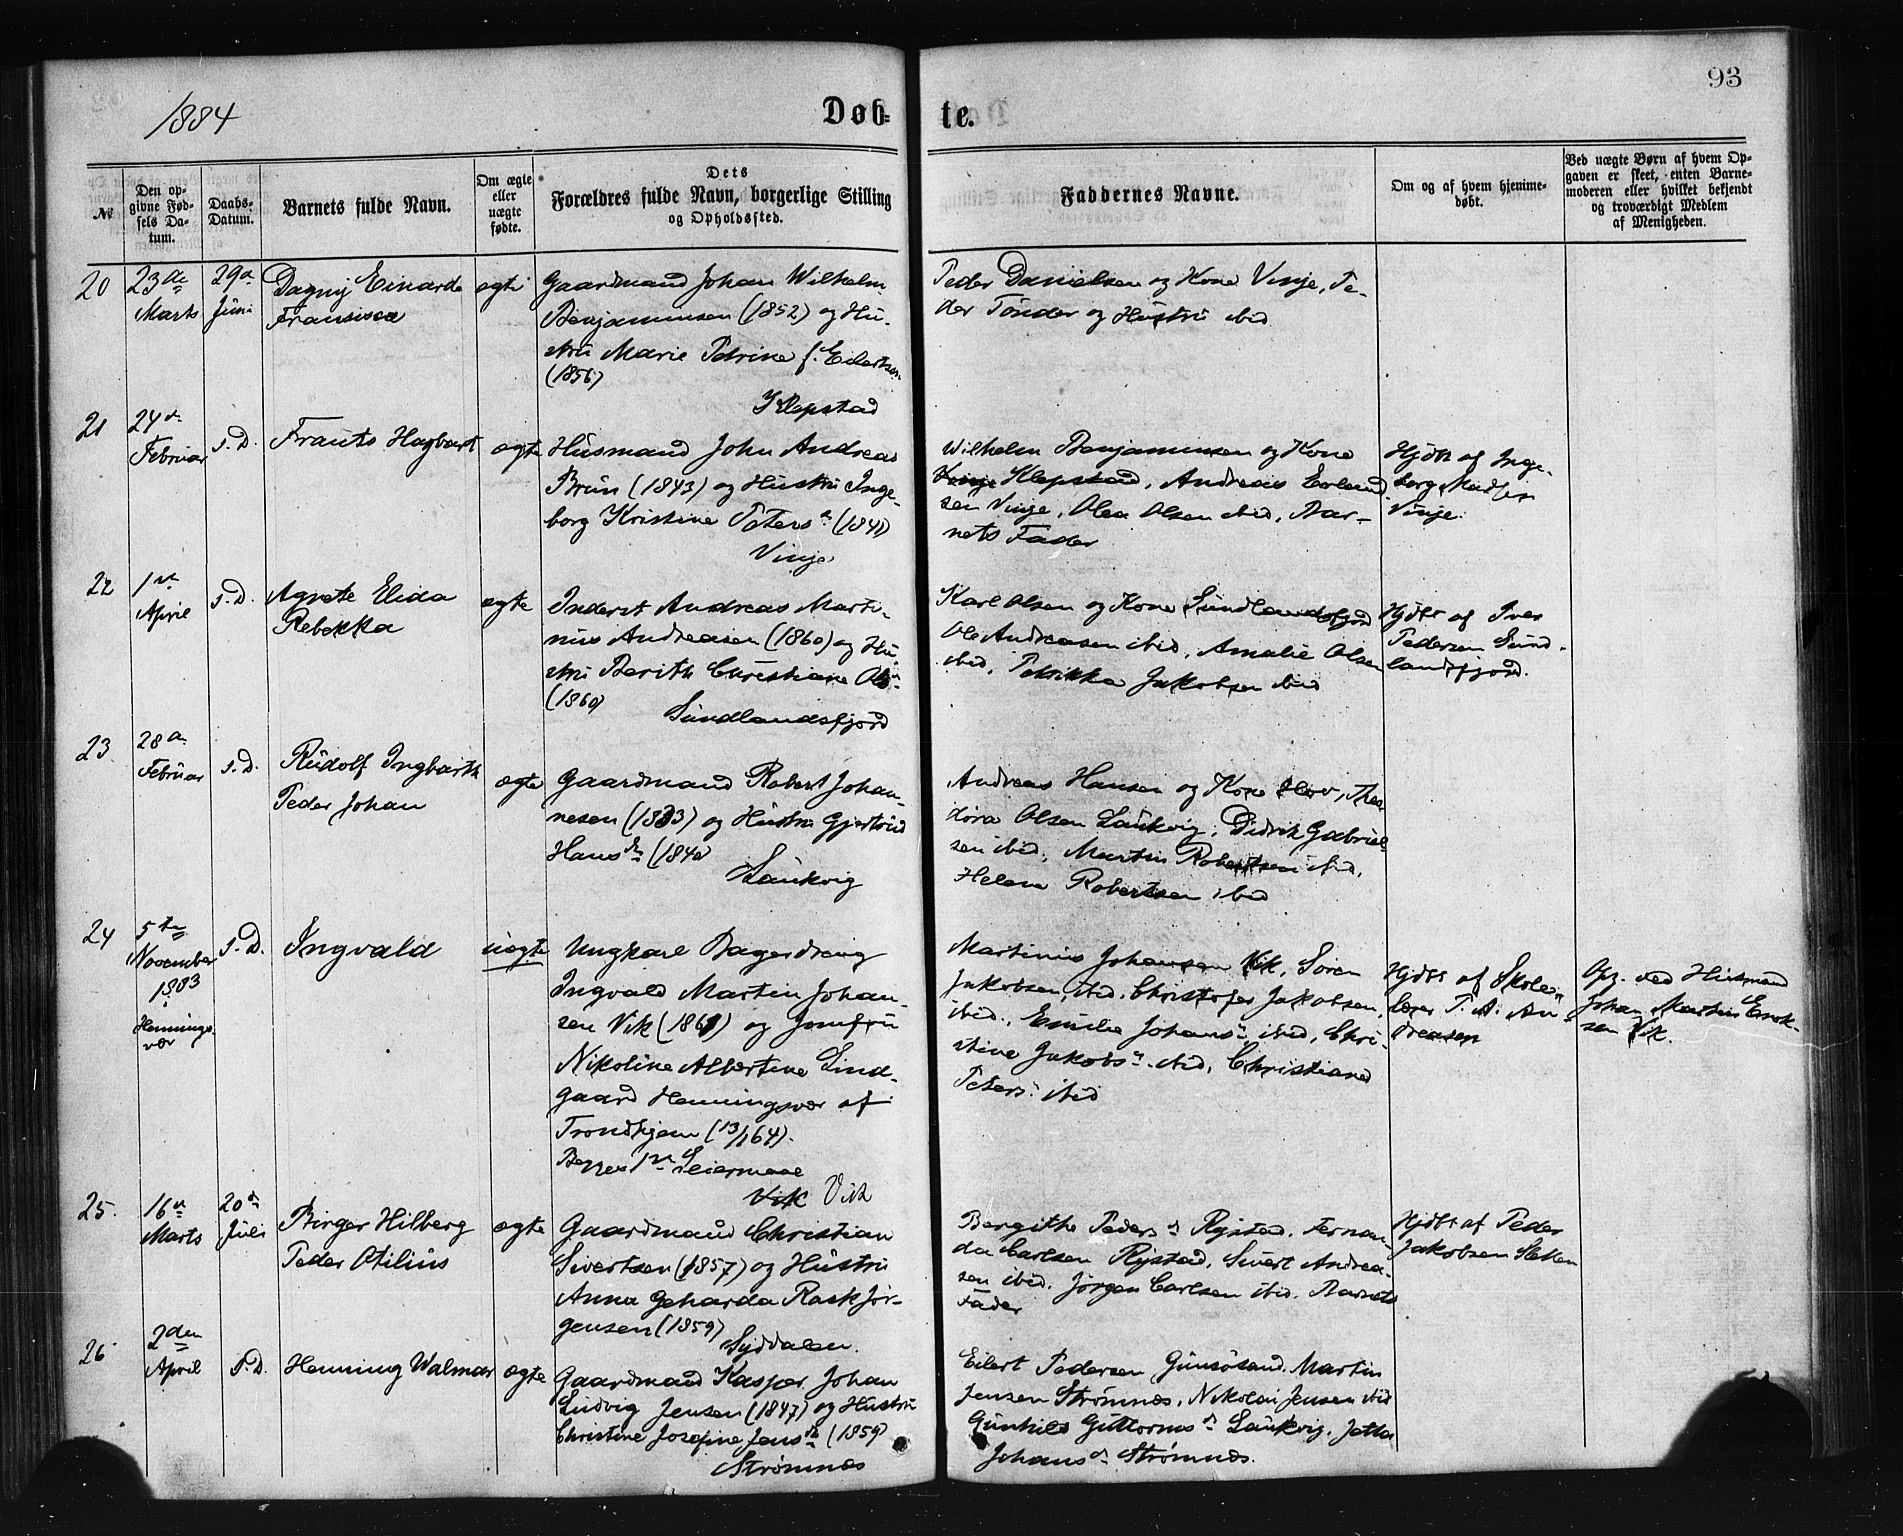 93
1884
Døb-
te.
№
Den op-
givne Fød-
sels Da-
tum.
Daabs-
Datum.
Barnets fulde Navn.
Om ægte
eller
uægte
fødte.
Dets
Forældres fulde Navn, borgerlige Stilling
og Opholdssted.
Faddernes Navne.
Om og af hvem hjemme-
døbt.
Ved uægte Børn af hvem Op-
gaven er skeet, enten Barne-
moderen eller hvilket bekjendt
og troværdigt Medlem
af Menigheden.
20
23de
Marts
29de
Juni
Dagny Einarda
Fransisca
ægte
Gaardmand Johan Wilhelm
Benjaminsen (1852) og Hu-
stru Marie Petrine f. Eilertsen
(1856)
Klepstad
Peder Danielsen og Kone Vinje, Pe-
der Tönder og Hustru ibid
21
24de
Februar
s. D.
Frants Hagbart
ægte
Husmand John Andreas
Brun (1843) og Hustru Inge-
borg Kristine Peters d. (1841)
Vinje
Wilhelm Benjaminsen og Kone
Klepstad, Andreas Erland-
sen Vinje, Olea Olsen ibid, Bar-
nets Fader
Hjdbt af Inge-
borg
Vinje.
22
1ste
April
s. D.
Agnete Elida
Rebekka
ægte
Inderst Andreas Marti-
nus Andreasen (1860) og Hu-
stru Berith Christiane Ols d.
(1860)
Sundlandsfjord
Karl Olsen og Kone Sundlandsfjord
Ole Andreasen ibid, Amalie Olsen
ibid, Petrikka Jakobsen ibid
Hjdbt af Iver
Pedersen Sund-
landsfjord.
23
28de
Februar
s. D.
Rudolf Ingbarth
Peder Johan
ægte
Gaardmand Robert Johan-
nesen (1833) og Hustru Gjertrud
Hans d. (1840)
Laukvig
Andreas Hansen og Kone Hov, Theo-
dora Olsen Laukvig, Didrik Gabriel-
sen ibid, Martin Robertsen ibid,
Helene Robertsen ibid
24
5te
November
1883
Hennings-
vær
s. D.
Ingvald
uægte
Ungkarl Bagerdreng
Ingvald Martin Johan-
sen Vik (1861) og Jomfru
Nikoline Albertine Lind-
gaard Henningsvær af
Trondhjem (13/1 64).
Begges 1ste Leiermaal
Vik Vik
Martinus Johansen Vik, Sören
Jakobsen, ibid. Christofer Jakobsen,
ibid., Emilie Johans d. ibid, Chri-
stine Jakobs d. ibid, Christiane
Peters d. ibid
Hjdbt af Skole-
lærer P. A. An-
dreasen
Opg. ved Husmand
Johan Martin Enok-
sen Vik.
25.
16de
Marts
20de
Juli
Birger Hilberg
Peder Otilius
ægte
Gaardmand Christian
Sivertsen (1857) og Hustru
Anna Geharda Rask Jör-
gensen (1859)
Syddalen.
Bergithe Peders d. Rystad, Fernan-
da Carlsen Rystad, Sivert Andrea-
sen ibid. Jörgen Carlsen ibid. Barnets
Fader
Hjdbt af Peder
Jakobsen
26
2den
April
s. D.
Henning Walmar
ægte
Gaardmand Kasper Johan
Ludvig Jensen (1847) og Hustru
Christine Josefine Jens d. (1859)
Strømnæs
Eilert Pedersen Gimsösand. Martin
Jensen Strømnæs, Nikolai Jensen ibid
Gunhild Guttorms d. Laukvig. Jetta
Johans d. Strømnæs.